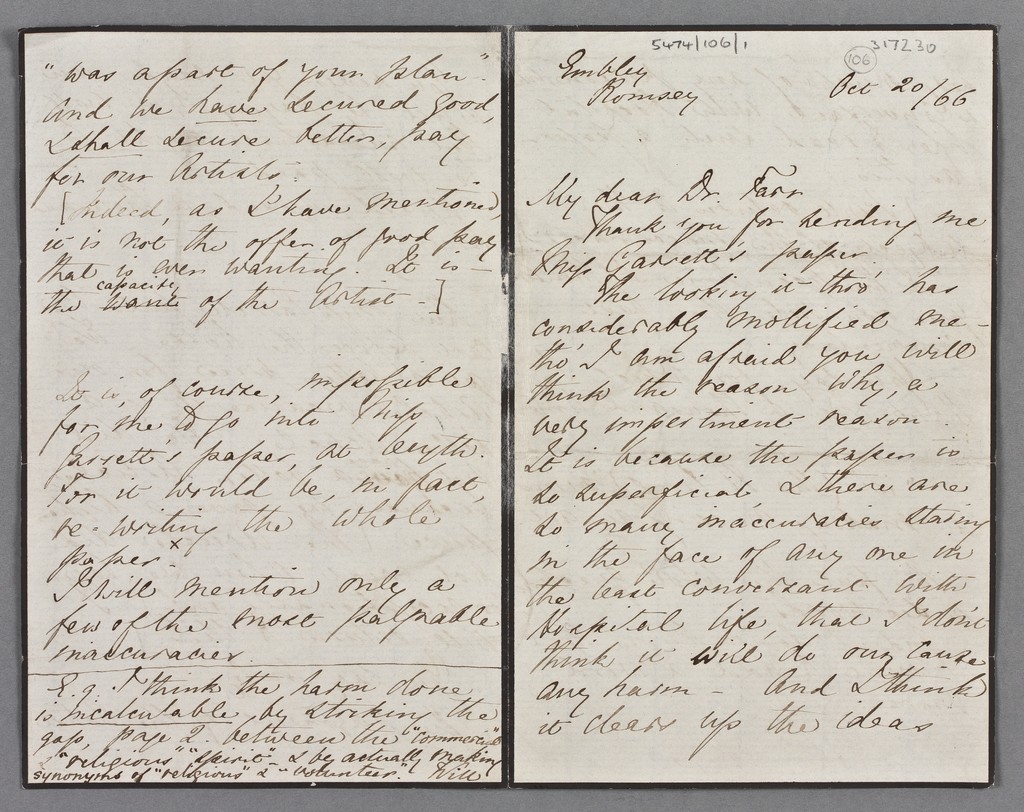 5474/106/1
106
317230
Embley
Romsey
Oct 20/66
My dear Dr. Farr
Thank you for sending me
Miss Garrett's paper.
The looking it thro' has
considerably mollified me -
tho' I am afraid you will
think the reason why, a
very impertinent reason.
It is because the paper is
so superficial, & there are
so many inaccuracies staring
in the face of any one in
the least conversant with
Hospital life, that I don't
think it will do our cause
any harm - And I think
it clears up the ideas
"was a part of your plan".
And we have secured good,
& shall secure better, pay
for our Artists.
[Indeed, as I have mentioned,
it is not the offer of good pay
that is ever wanting. It is -
capacity
the want of the Artist -]
It is, of course, impossible
for me to go into Miss
Garrett's paper, at length.
For it would be, in fact,
re-writing the whole
paper. x
I will mention only a
few of the most palpable
inaccuracies.
E.g. I think the harm done
is incalculable, by striking the
gap, page 2. between the "commercial"
& "religious" "spirit" - & by actually making
synonyms of "religious" & "volunteer". Will